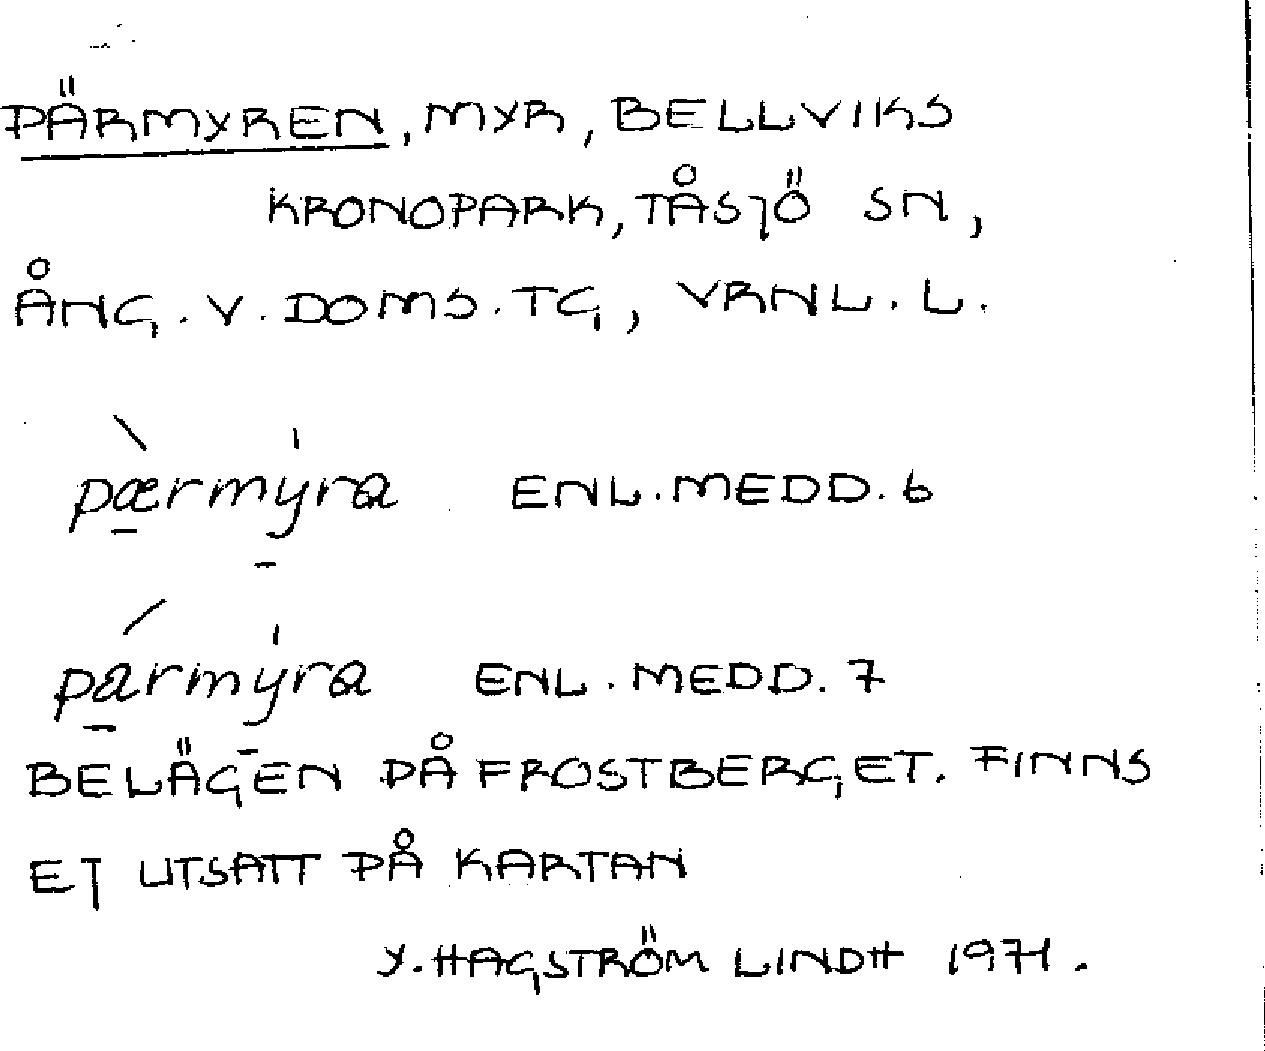 PÄRMYREN, MYR, BELLVIKS
KRONOPARK, TÅSJÖ SN,
ÅNG. V. DOMS. TG, VRNL. L.
pærmyra ENL. MEDD. 6
parmyra ENL. MEDD. 7
BELÄGEN PÅ FROSTBERGET. FINNS
EJ UTSATT PÅ KARTAN
Y. HAGSTRÖM LINDH 1971.